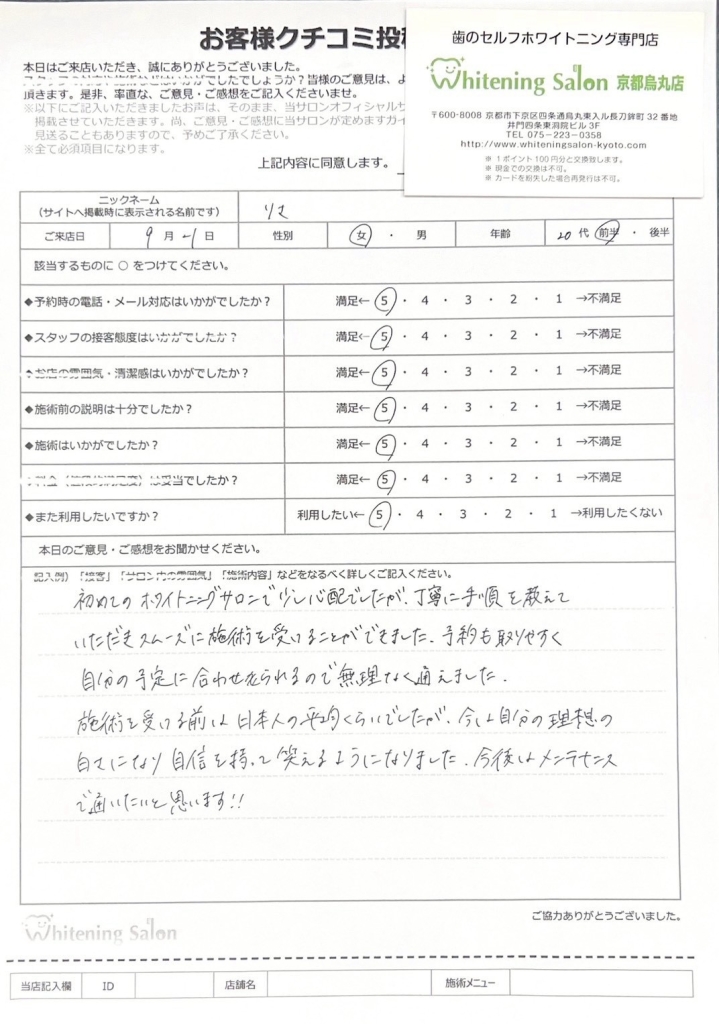 お客様クチコミ投稿
歯のセルフホワイトニング専門店
Whitening Salon 京都烏丸店
〒600-8008 京都市下京区四条通烏丸東入ル長刀鉾町 32 番地
井門四条東洞院ビル 3F
TEL 075-223-0358
http://www.whiteningsalon-kyoto.com
※ 1ポイント100円分と交換致します。
※ 現金での交換は不可。
※ カードを紛失した場合再発行は不可。
本日はご来店いただき、誠にありがとうございました。
いかがでしたでしょうか?皆様のご意見は、よ
頂きます。是非、率直な、ご意見・ご感想をご記入くださいませ。
※以下にご記入いただきましたお声は、そのまま、当サロンオフィシャルサ
掲載させていただきます。尚、ご意見・ご感想に当サロンが定めますガイ
見送ることもありますので、予めご了承ください。
※全て必須項目になります。
上記内容に同意します。
ニックネーム
(サイトへ掲載時に表示される名前です) りさ
ご来店日 9 月 21 日 性別 女 ・ 男 年齢 20 代 前半 ・ 後半
該当するものに ○ をつけてください。
◆予約時の電話・メール対応はいかがでしたか? 満足← 5 ・ 4 ・ 3 ・ 2 ・ 1 →不満足
◆スタッフの接客態度はいかがでしたか? 満足← 5 ・ 4 ・ 3 ・ 2 ・ 1 →不満足
◆お店の雰囲気・清潔感はいかがでしたか? 満足← 5 ・ 4 ・ 3 ・ 2 ・ 1 →不満足
◆施術前の説明は十分でしたか? 満足← 5 ・ 4 ・ 3 ・ 2 ・ 1 →不満足
◆施術はいかがでしたか? 満足← 5 ・ 4 ・ 3 ・ 2 ・ 1 →不満足
は妥当でしたか? 満足← 5 ・ 4 ・ 3 ・ 2 ・ 1 →不満足
◆また利用したいですか? 利用したい← 5 ・ 4 ・ 3 ・ 2 ・ 1 →利用したくない
本日のご意見・ご感想をお聞かせください。
記入例)「接客」「サロン内の雰囲気」「施術内容」などをなるべく詳しくご記入ください。
初めてのホワイトニングサロンで少し心配でしたが、丁寧に手順を教えて
いただきスムーズに施術を受けることができました。予約も取りやすく
自分の予定に合わせられるので無理なく通えました。
施術を受ける前は日本人の平均くらいでしたが、今は自分の理想の
白さになり自信を持って笑えるようになりました。今後はメンテナンス
で通いたいと思います!!
Whitening Salon
ご協力ありがとうございました。
当店記入欄 ID 店舗名 施術メニュー